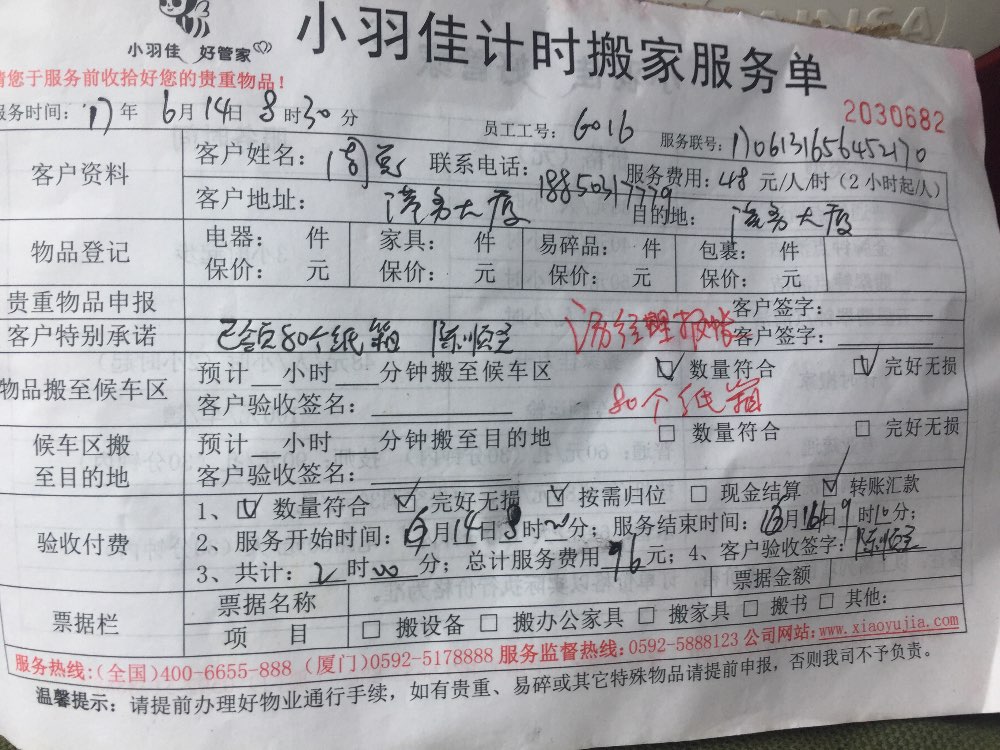 小羽佳 好管家
小羽佳计时搬家服务单
请您于服务前收拾好您的贵重物品！
2030682
服务时间：17年6月14日8时30分 员工工号：G016 服务联号：1706131656452170
客户资料
客户姓名： 联系电话：18850317779 服务费用：48元/人/时（2小时起/人）
客户地址：港务大厦 目的地：港务大厦
物品登记
电器： 件 家具： 件 易碎品： 件 包裹： 件
保价： 元 保价： 元 保价： 元 保价： 元
贵重物品申报 客户签字：
客户特别承诺 已含80个纸箱 陈顺 经理报帐 客户签字：
物品搬至候车区
预计 小时 分钟搬至候车区 ☑ 数量符合 ☑ 完好无损
客户验收签名： 80个纸箱
候车区搬至目的地
预计 小时 分钟搬至目的地 □ 数量符合 □ 完好无损
客户验收签名：
验收付费
1、☑ 数量符合 ☑ 完好无损 ☑ 按需归位 □ 现金结算 ☑ 转账汇款
2、服务开始时间：6月14日8时20分；服务结束时间：6月16日9时10分；
3、共计：2时00分；总计服务费用96元；4、客户验收签字：陈顺
票据栏
票据名称 票据金额
项 目 □ 搬设备 □ 搬办公家具 □ 搬家具 □ 搬书 □ 其他：
服务热线：(全国)400-6655-888 (厦门)0592-5178888 服务监督热线：0592-5888123 公司网站：www.xiaoyujia.com
温馨提示：请提前办理好物业通行手续，如有贵重、易碎或其它特殊物品请提前申报，否则我司不予负责。